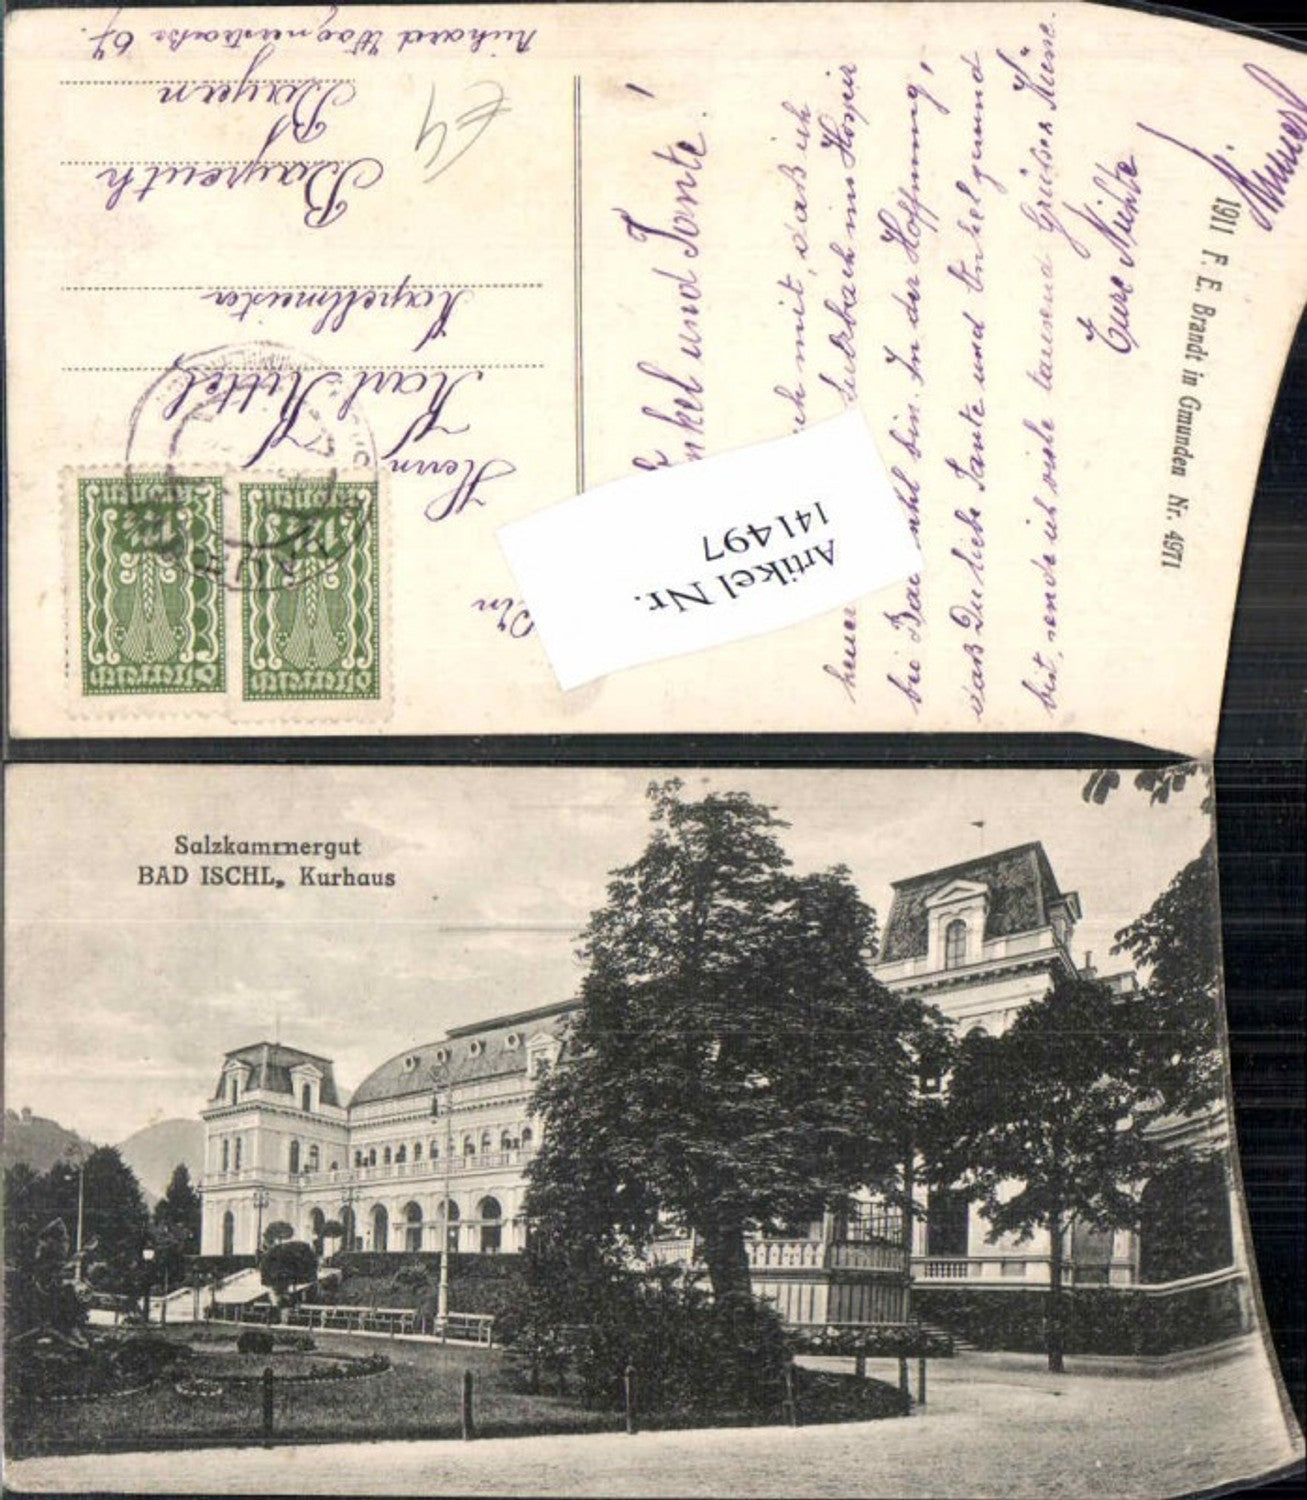 Herrn
Karl Kittel
Kapellmeister
Bayreuth
Bayern
Richard Wagnerstraße 67.
€4
Österreich
Österreich
Artikel Nr.
141497
Onkel und Tante!
mit, daß ich
heuer Sulzbach im Hösseir
bin. In der Hoffnung,
daß Du liebe Tante und Onkel gesund
bist, sende ich viele tausend Grüße u. Küsse.
Eure Nichte
1911 F. E. Brandt in Gmunden Nr. 4971
Salzkammergut
BAD ISCHL, Kurhaus